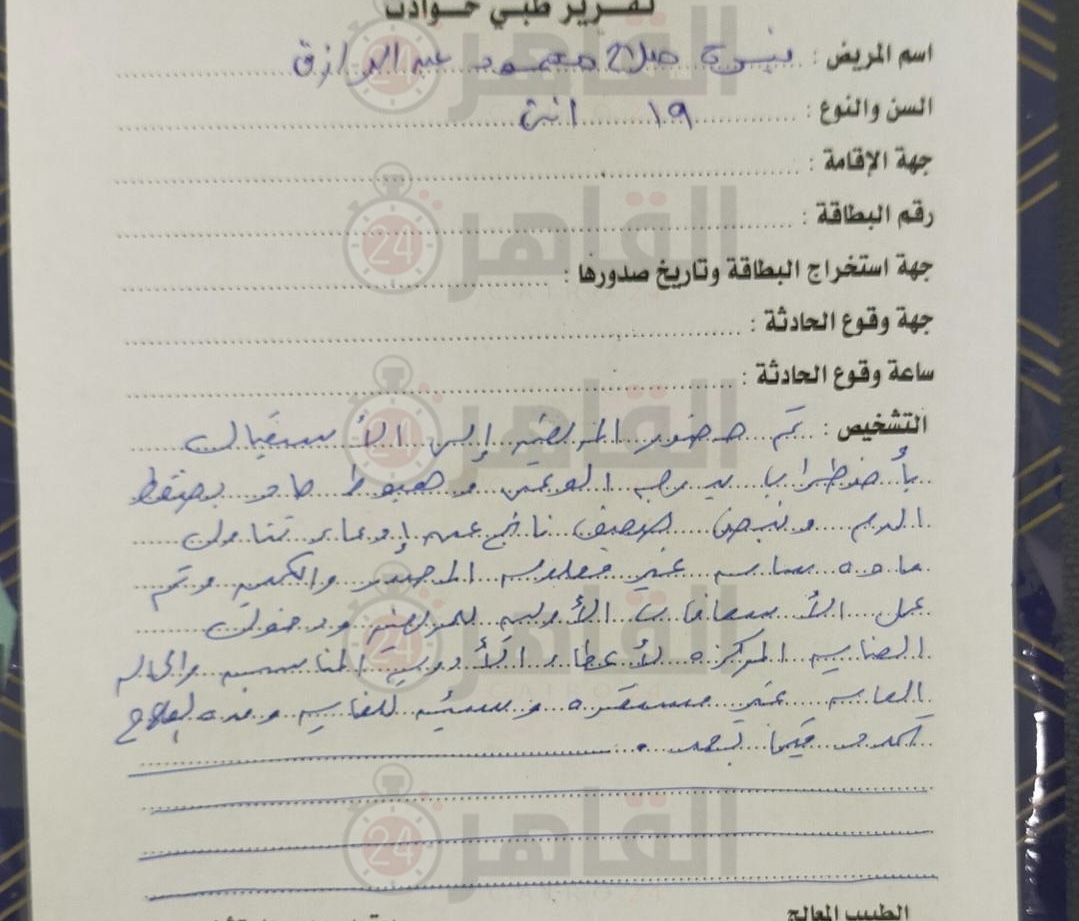 تقرير طبي حوادث
اسم المريض : نيرة صلاح محمود عبد الرازق
السن والنوع : ١٩ انثى
جهة الإقامة :
رقم البطاقة :
جهة استخراج البطاقة وتاريخ صدورها :
جهة وقوع الحادثة :
ساعة وقوع الحادثة :
التشخيص : تم حضور المريضه إلى الأستقبال
بأضطراب بدرجه الوعى وهبوط حاد بضغط
الدم ونبض ضعيف ناتج عن إدعاء تناول
ماده سامه غير معلومه المصدر والكميه وتم
عمل الأسعافات الأوليه للمريضه ودخول
العنايه المركزه لأعطاء الأدويه المناسبه والحاله
العامه غير مستقره وسيئه للغايه ومده العلاج
تحدد فيما بعد .
الطبيب المعالج
القاهرة 24